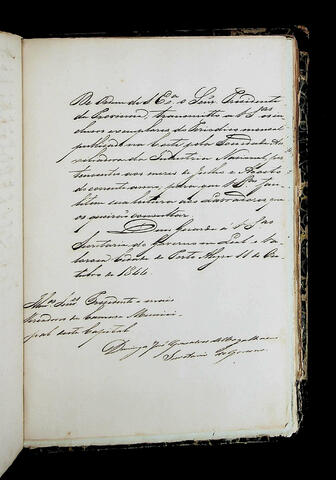 De Ordem de S. Ex.ª o Senr. Presidente
da Provincia, transmitto a V. S.as os in
clusos exemplares do Periodico mensal
publicado na Corte pela Sociedade Au
xiliadora da Industria Nacional, per
tencentes aos mezes de Julho e Agosto
do corrente anno, para que V. S.as fa
cilitem sua leitura aos Lavradores que
os queirão consultar.
Deos Guarde a V. S.as
Secretaria do Governo na Leal e Va
lorosa Cidade de Porto Alegre 11 de Ou
tubro de 1844
Illmos. Snres. Presidente e mais
Vereadores da Camara Munici
pal desta Capital
Domingos José Gonçalves de Magalhaens
Secretario do Governo